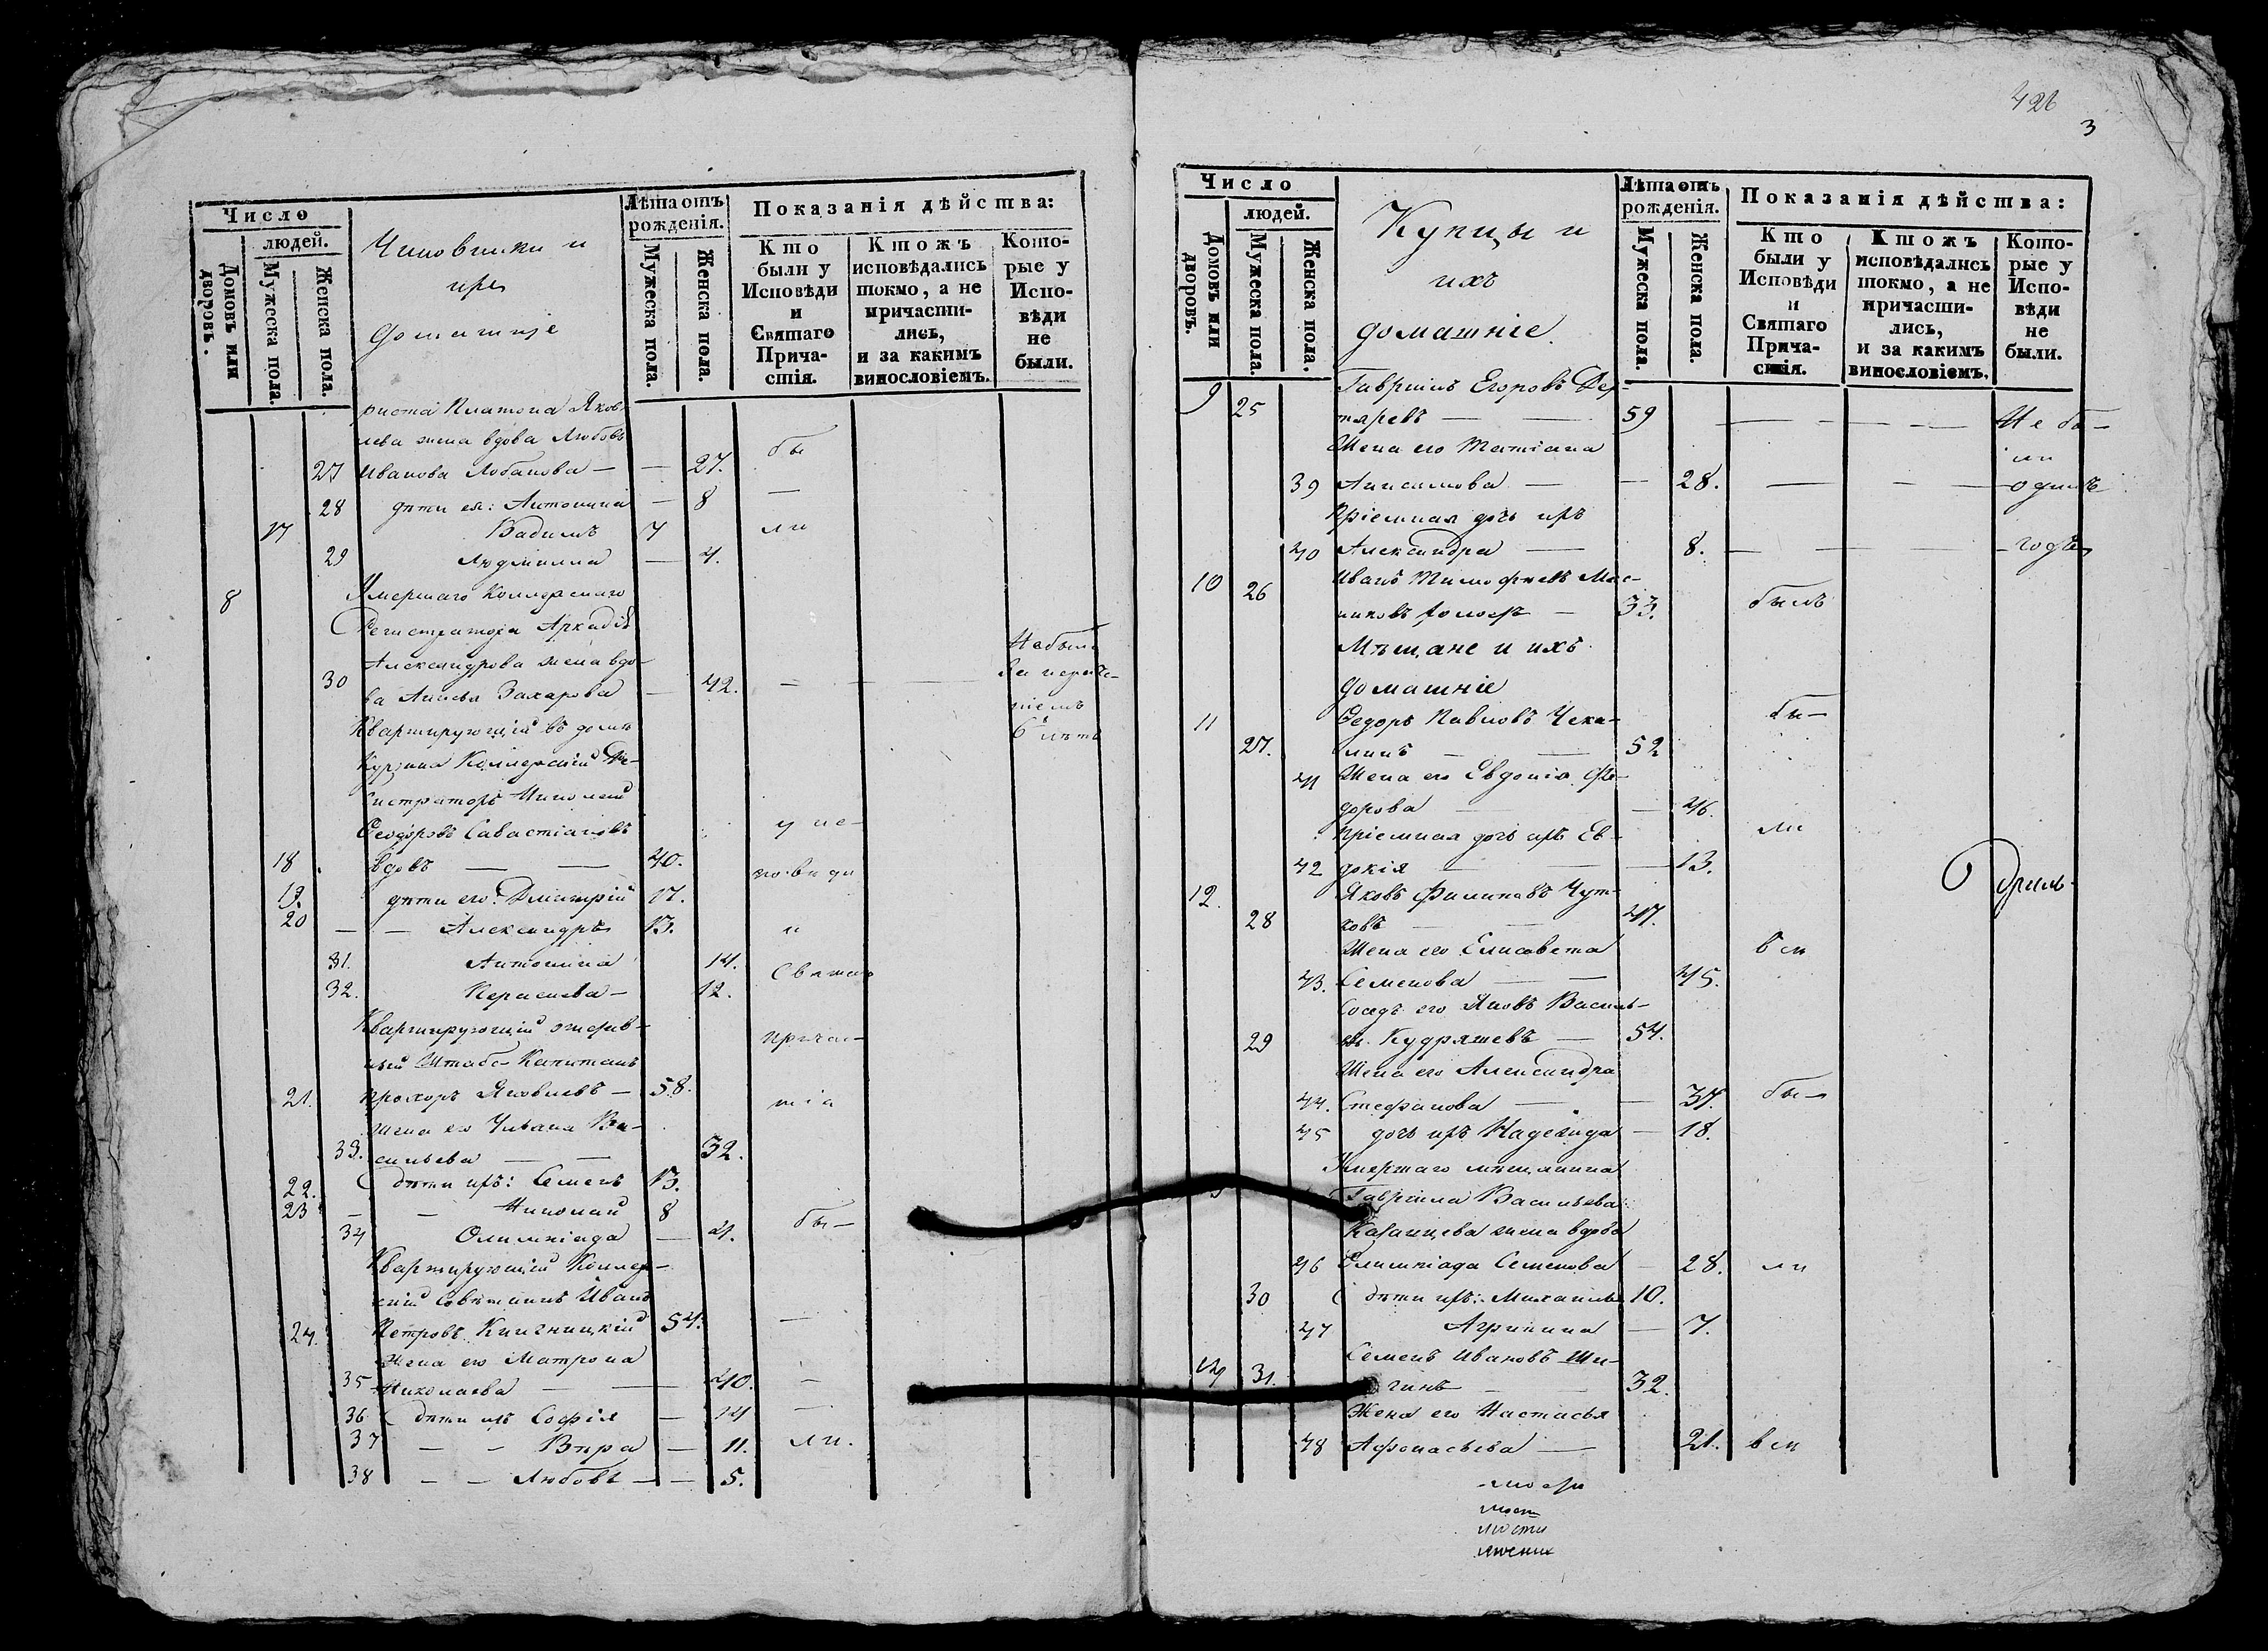 Число
людей.
Домовъ или дворовъ.
Мужеска пола.
Женска пола.
Чиновники и
ихъ
домашніе
Лѣта отъ рожденія.
Мужеска пола.
Женска пола.
Показанія дѣйства:
Кто были у Исповѣди и Святаго Причастія.
Ктожъ исповѣдались токмо, а не причастились, и за какимъ винословіемъ.
Которые у Исповѣди не были.
риста Платона Яков-
лева жена вдова Любовь бы
27 Иванова Лобанова — — 27.
28 дѣти ея: Антонина — 8 —
17 Вадимъ 7 ли
29 Людмилла — 4.
8 Умершаго Коллежскаго
Регистратора Аркадія
Александрова жена вдо- Небыла
30 ва Анисья Захарова — 42. — — За нерадѣ-
ніемъ
Квартирующій въ домѣ 6 лѣтъ
Коллежскій Ре-
гистраторъ Николай
Феодоровъ Савастіановъ у ис-
18 вдовъ — — 40. повѣди
19. дѣти его: Дмитрій 17.
20 — — Александръ 13. и
31. Антонина 14. Святаго
32. 12.
Квартирующій отстав- причас-
ный Штабс-Капитанъ
21. Прохоръ Яковлевъ — 58. тія
Жена его Ва-
33. сильева — — 32.
22. дѣти ихъ: Семенъ 13.
23 — — Николай 8 бы-
34 Олимпіада — 4.
Квартирующій Коллеж-
скій Совѣтникъ Иванъ
24. Петровъ Книгницкій 54. —
Жена его Матрона
35 Николаева — — 40. —
36 дѣти ихъ Софія — 14 —
37 — — Вѣра — 11. ли.
38 — — Любовь — — 5.
426
3
Число
людей.
Домовъ или дворовъ.
Мужеска пола.
Женска пола.
Купцы и
ихъ
домашніе.
Лѣта отъ рожденія.
Мужеска пола.
Женска пола.
Показанія дѣйства:
Кто были у Исповѣди и Святаго Причастія.
Ктожъ исповѣдались токмо, а не причастились, и за какимъ винословіемъ.
Которые у Исповѣди не были.
9 Гавріилъ Егоровъ Дег-
25 тяревъ — — 59 — — — Не бы-
Жена его Татіана ли
39 Анисимова — — 28. — — — одинъ
Пріемная дочь ихъ
40 Александра — 8. — — — годъ
10 Иванъ Тимофѣевъ Мас-
26 никовъ холостъ — 33. былъ
Мѣщане и ихъ
домашніе
11 Федоръ Павловъ Чека- бы-
27. линъ — — 52
41 Жена его Евдокія Фе-
дорова — — 46.
Пріемная дочь ихъ Ев- ли
42 докія — — 13.
12. Яковъ Филиповъ Чут-
28 ковъ — — 47.
Жена его Елисавета вси
43. Семенова — — 45.
Соседъ его Яковъ Василь-
29 евъ Кудряшевъ — 54.
Жена его Александра
44. Стефанова — — 37. бы-
45 дочь ихъ Надежда — 18.
Умершаго мѣщанина
Гавріила Васильева
Казанцева жена вдова
46 Олимпіада Семенова — 28. ли
30 дѣти ихъ: Михаилъ 10.
47 Агрипина — 7.
14 Семенъ Ивановъ Ши-
31. гинъ — — 32.
Жена его Настасья
48 Афонасьева — 21. вси